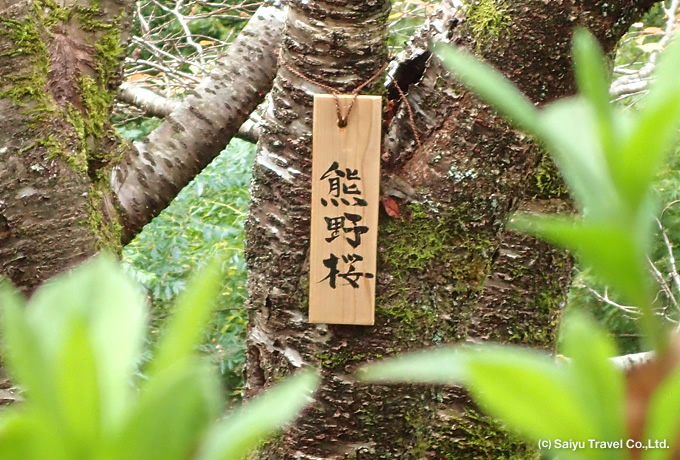 熊野桜
(c) Saiyu Travel Co.,Ltd.